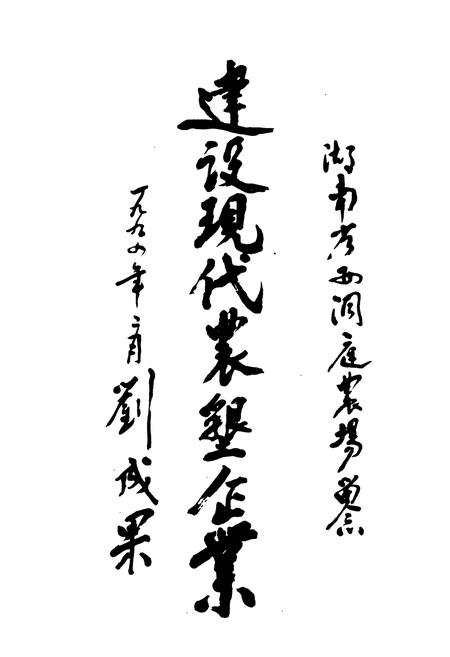 湖南省西洞庭農場留念
建设現代農墾企業
一九九四年二月 劉成果